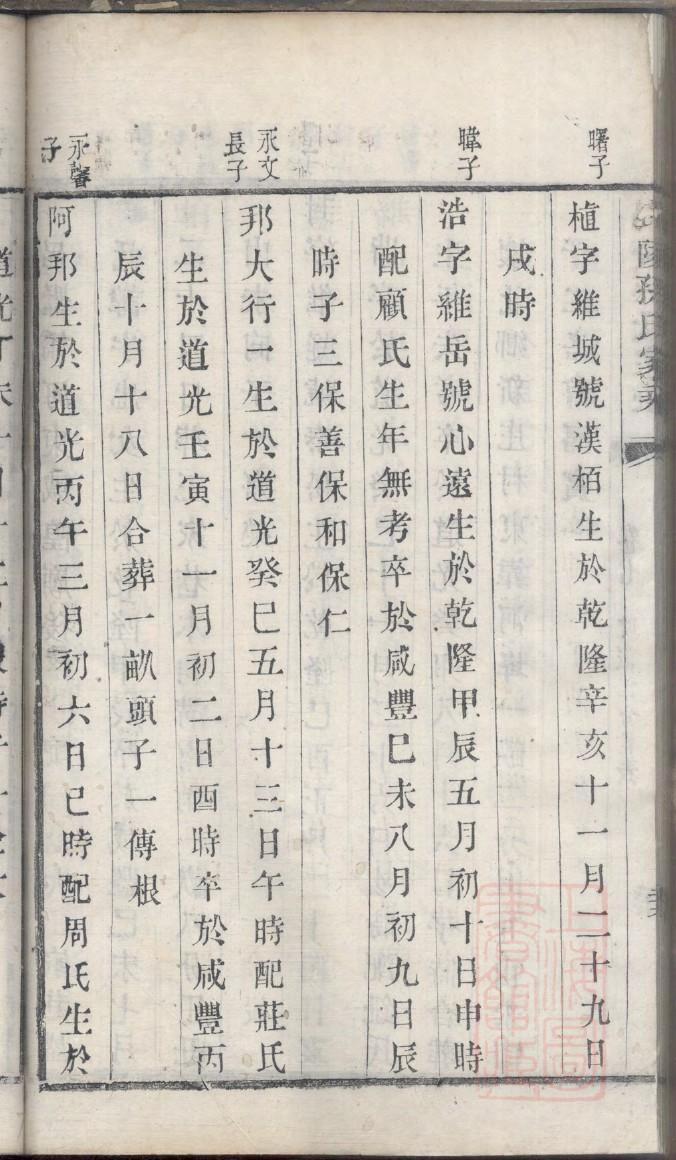 孫氏家乘
曙子
植字維城號漢栢生於乾隆辛亥十一月二十九日
戌時
暐子
浩字維岳號心遠生於乾隆甲辰五月初十日申時
配顧氏生年無考卒於咸豐巳未八月初九日辰
時子三保善保和保仁
永文
長子
邦大行一生於道光癸巳五月十三日午時配莊氏
生於道光壬寅十一月初二日酉時卒於咸豐丙
辰十月十八日合葬一畝頭子一傳根
永馨
子
阿邦生於道光丙午三月初六日巳時配周氏生於